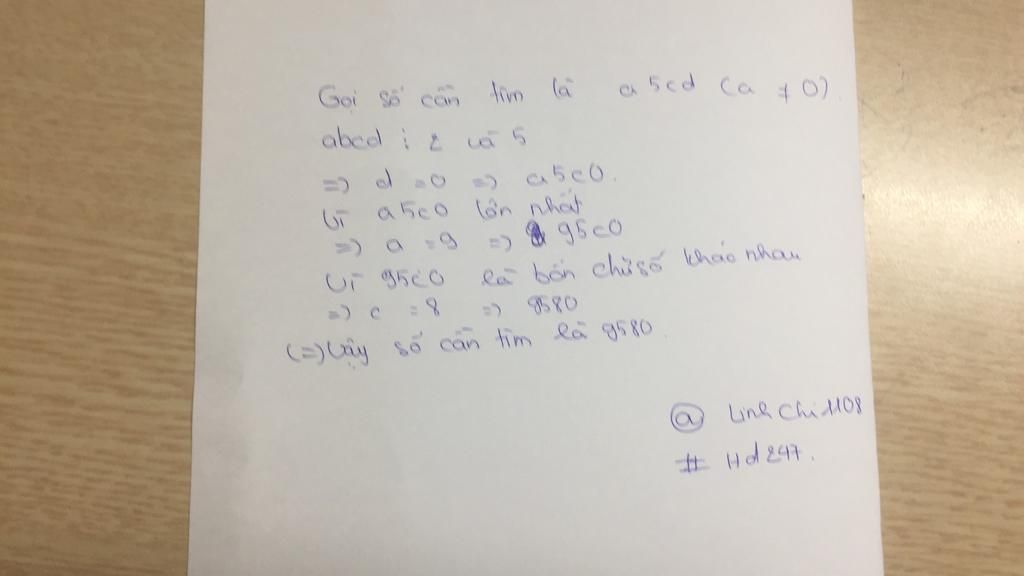 Gọi số cần tìm là a5cd (a ≠ 0).
abcd ⋮ 2 và 5
=> d = 0 => a5c0.
Vì a5c0 lớn nhất
=> a = 9 => 95c0
Vì 95c0 là bốn chữ số khác nhau
=> c = 8 => 9580
(=> Vậy số cần tìm là 9580.
@ Linhchi1108
# Hd247.